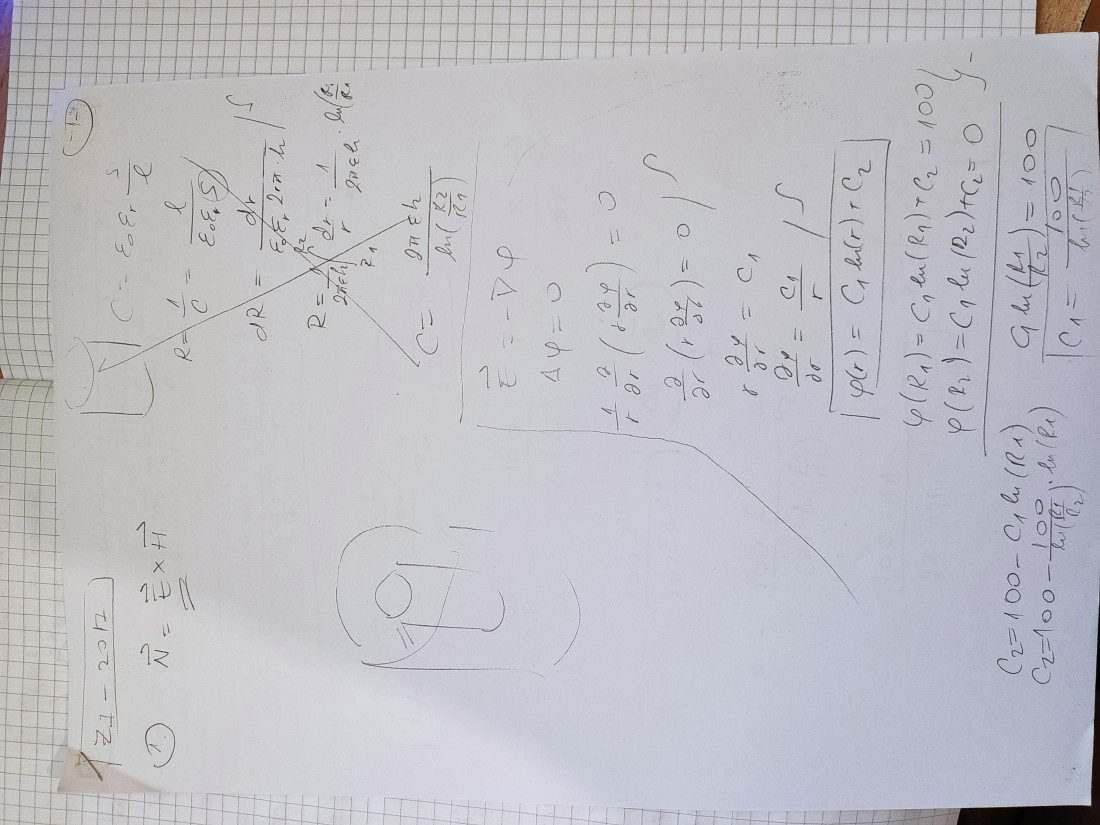 ZI - 2017
-1-
1.
N⃗ = E⃗ × H⃗
C = ε₀εᵣ S/l
R = 1/C = l/(ε₀εᵣ(S))
dR = dr/(ε₀εᵣ 2rπ·h) /∫
R = 1/(2πεh) ∫_{R1}^{R2} dr/r = 1/(2πεh) · ln(R2/R1)
C = 2πεh/ln(R2/R1)
E⃗ = -∇φ
Δφ = 0
1/r ∂/∂r (r ∂φ/∂r) = 0
∂/∂r (r ∂φ/∂r) = 0 /∫
r ∂φ/∂r = C1
∂φ/∂r = C1/r /∫
φ(r) = C1 ln(r) + C2
φ(R1) = C1 ln(R1) + C2 = 100 } -
φ(R2) = C1 ln(R2) + C2 = 0
C1 ln(R1/R2) = 100
C1 = 100/ln(R1/R2)
C2 = 100 - C1 ln(R1)
C2 = 100 - 100/ln(R1/R2) · ln(R1)